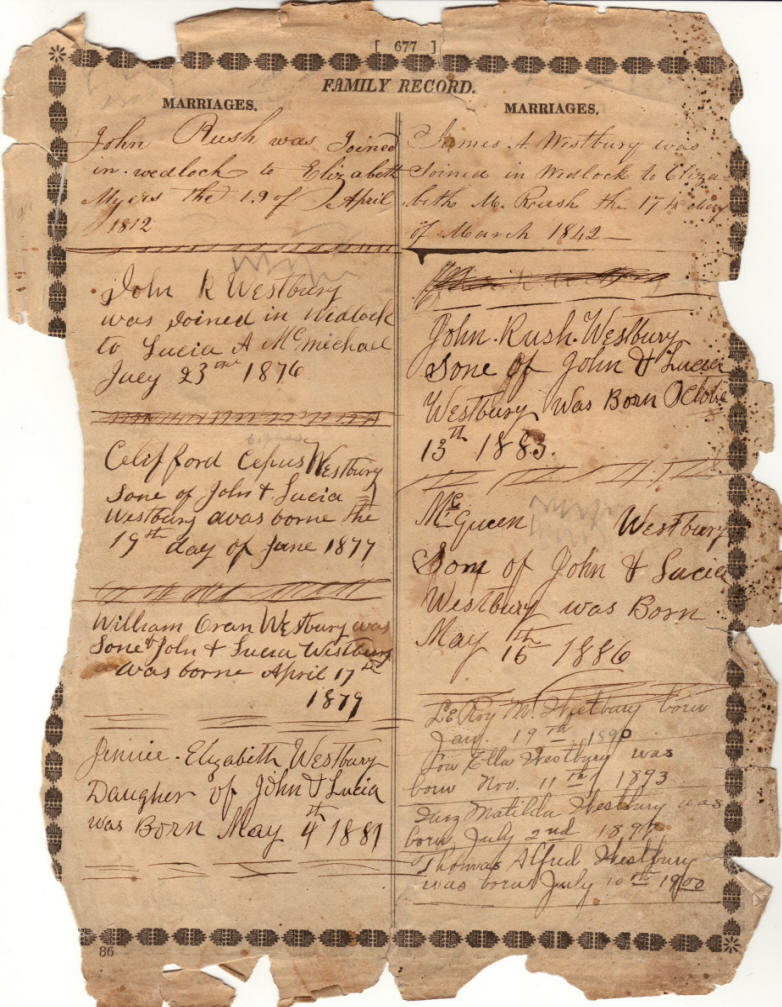 [ 677 ]
FAMILY RECORD.
MARRIAGES.
John Rush was Joined
in wedlock to Elizabeth
Myers the 19 of April
1812
John R Westbury
was Joined in Wedlock
to Lucia A McMichael
Juey 23 1876
Westbury
Sone of John & Lucia
Westbury was borne the
19th day of June 1877
William Oran Westbury was
Sone of John & Lucia Westbury
was borne April 17th
1879
Jennie Elizabeth Westbury
Daugher of John & Lucia
was Born May 4th 1881
86
MARRIAGES.
James A Westbury was
Joined in Wedlock to Eliza
beth M. Rush the 17th day
of March 1842
John Rush Westbury
Sone of John & Lucia
Westbury Was Born Octobe
13th 1883.
McQueen Westbury
Son of John & Lucia
Westbury was Born
May 15th 1886
LeRoy W. Westbury born
Jan. 19th 1890
Ella Westbury was
born Nov. 11th 1893
Matilda Westbury was
born July 2nd
Thomas Alfred Westbury
was born July 10th 1900